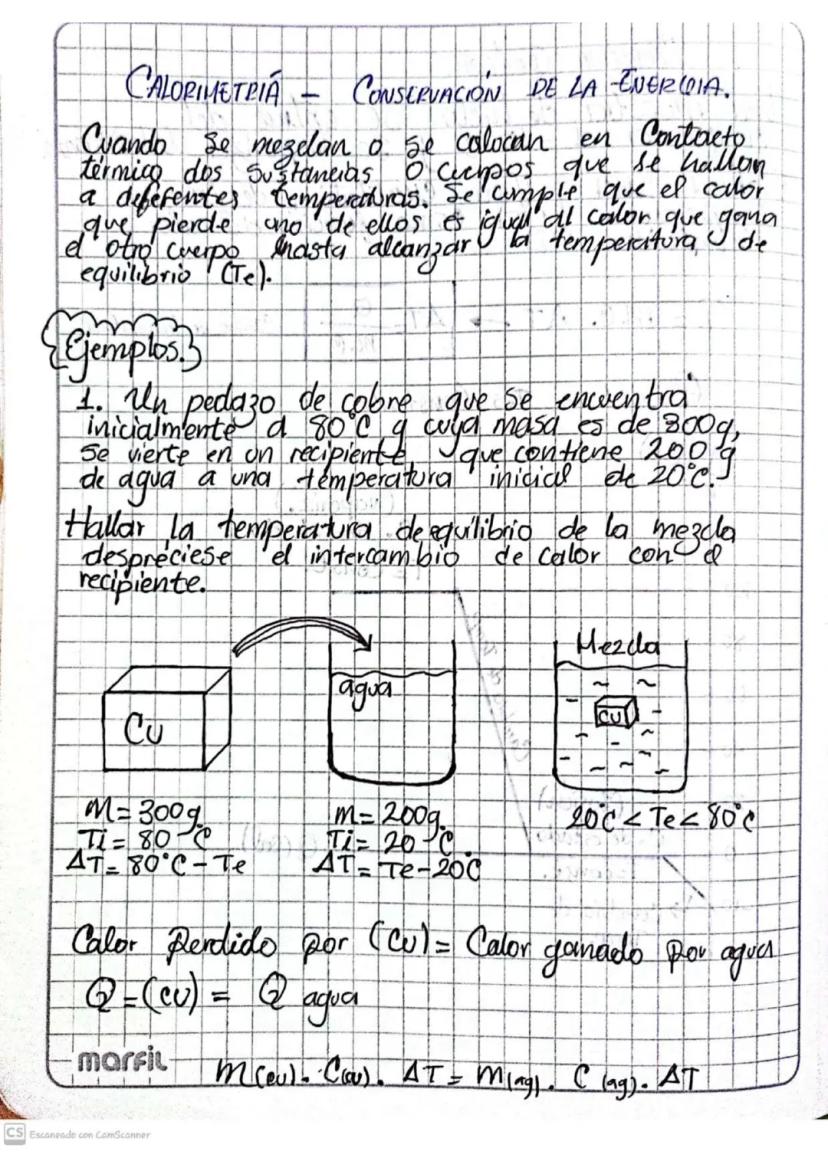 CALORIMETRIÁ – CONSERVACIÓN DE LA ENERGIA.
Cuando se mezclan o se calocan en Contacto
térmico dos sustancias o cuerpos que se hallan
a deferentes temperaturas. Se cumple que el calor
que pierde uno de ellos es igual al calor que gana
el otro cuerpo hasta alcanzar la temperatura de
equilibrio (Te).
Ejemplos.
1. Un pedazo de cobre que se encuentra
inicialmente a 80°C y cuya masa es de 300g,
se vierte en un recipiente que contiene 200g
de agua a una temperatura inicial de 20°C.
Hallar la temperatura de equilibrio de la mezcla
despréciese el intercambio de calor con el
recipiente.
Cu
agua
Mezcla
Cu
m = 300g
Ti = 80°C
ΔT = 80°C – Te
m = 200g.
Ti = 20°C
ΔT = Te – 20°C
20°C < Te < 80°C
Calor Perdido por (Cu) = Calor ganado por agua
Q = (cu) = Q agua
marfil
m(cu). C(cu). ΔT = m(ag). C(ag). ΔT
CS Escaneado con CamScanner